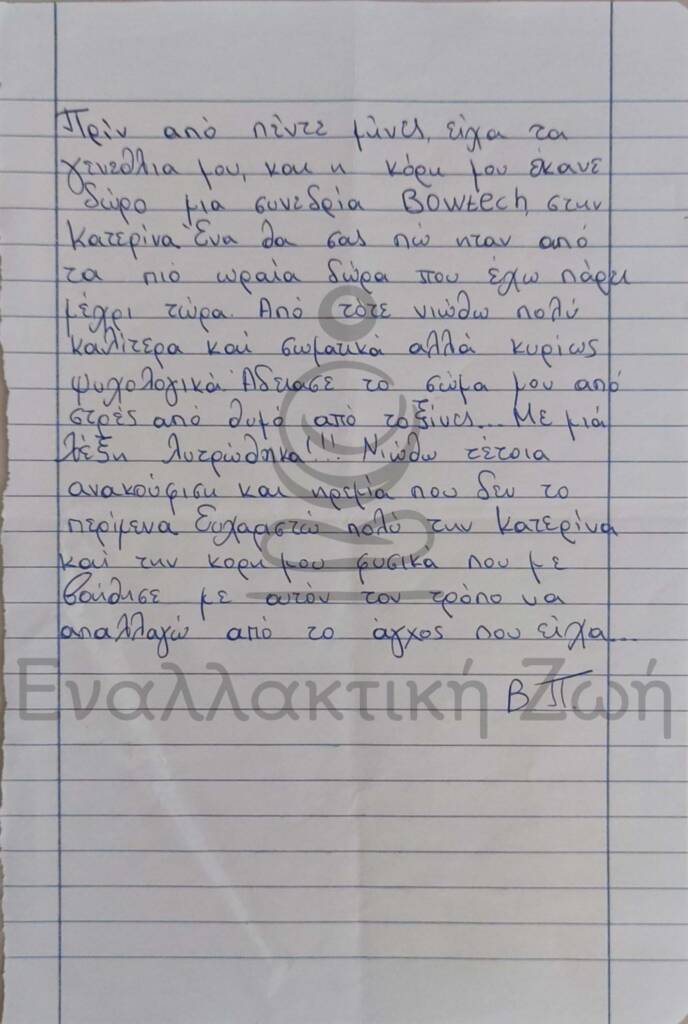 Πρίν από πέντε μήνες, είχα τα
γενέθλια μου, και η κόρη μου έκανε
δώρο μια συνεδρία Bowtech, στην
Κατερίνα Ένα θα σας πώ ηταν από
τα πιό ωραία δώρα που έχω πάρει
μέχρι τώρα. Από τότε νιώθω πολύ
καλίτερα και σωματικά αλλά κυρίως
ψυχολογικά. Αδειασε το σώμα μου από
στρές από θυμό από τοξίνες... Με μιά
λέξη λυτρώθηκα!!! Νιώθω τέτοια
ανακούφιση και ηρεμία που δεν το
περίμενα Ευχαριστώ πολύ την Κατερίνα
και την κορη μου φυσικά που με
βοήθησε με αυτόν τον τρόπο να
απαλλαγώ από το άγχος που είχα...
Εναλλακτική Ζωή
Β Π.